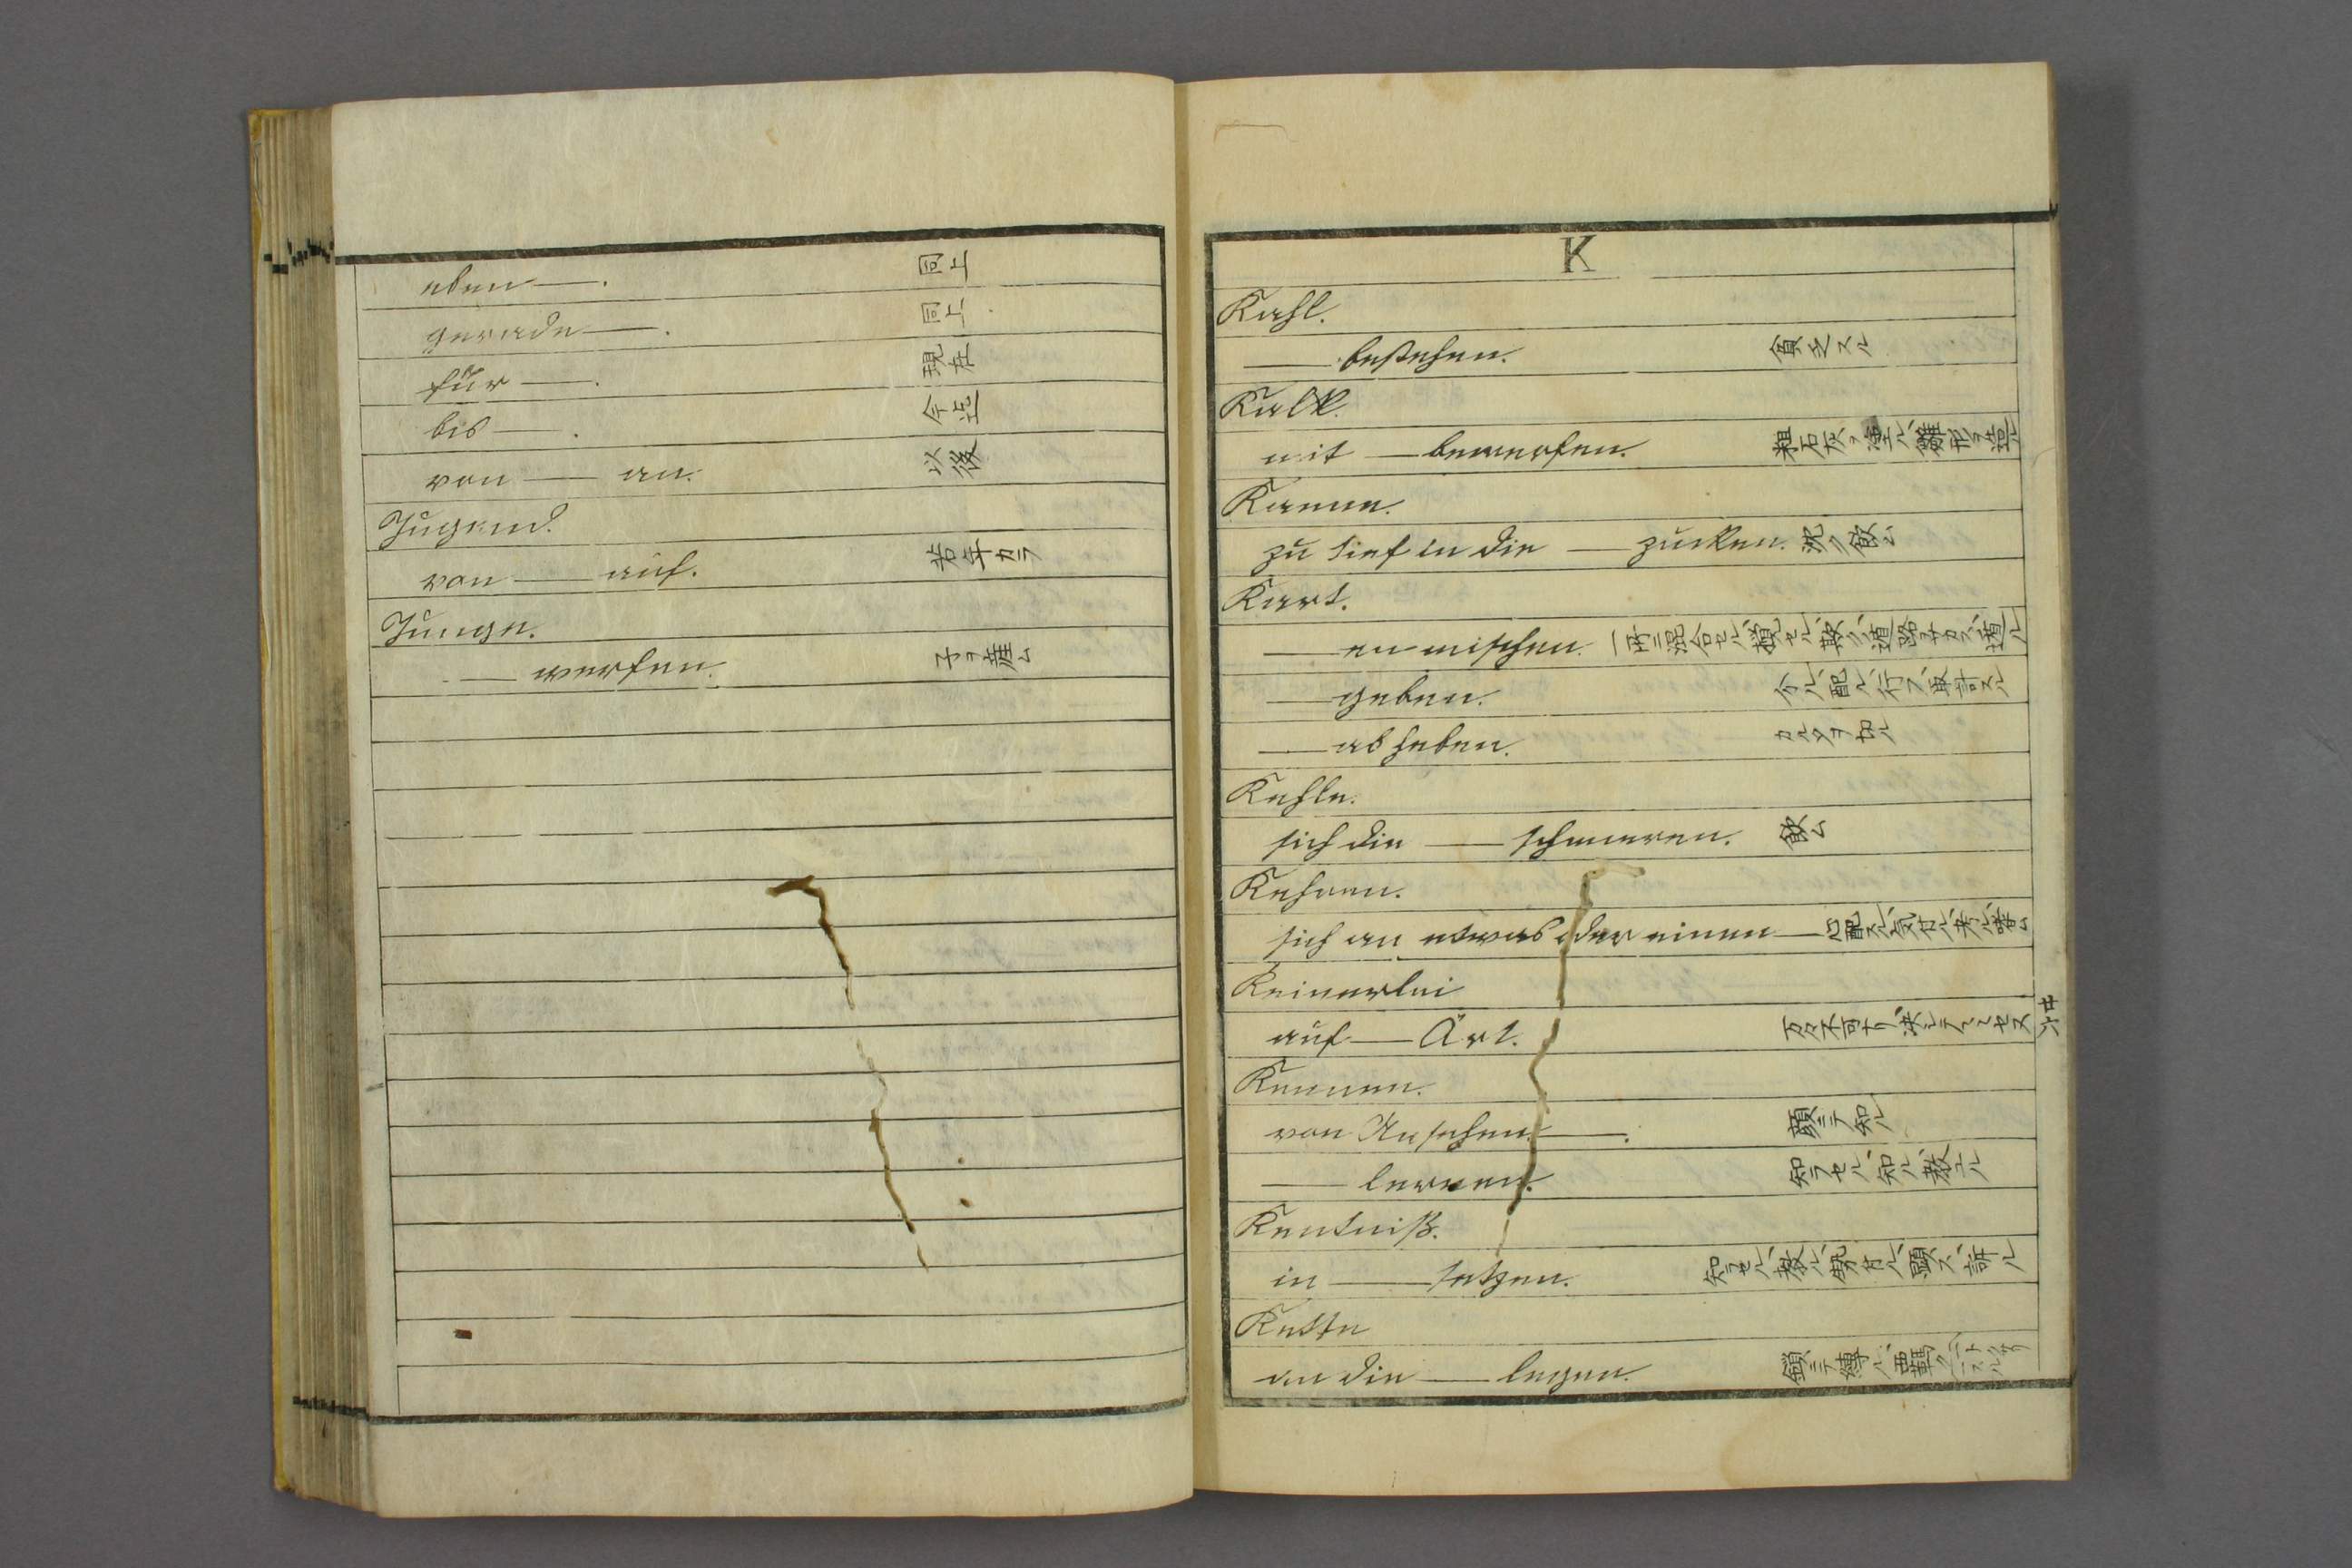 eben —. 同上
gerade —. 同上
für —. 現在
bis —. 今迄
von — an. 以後
Jugend.
von — auf. 若年カラ
Junge.
— werfen. 子ヲ産ム
K
Kahl.
— bestehen. 貧乏スル
Kalk.
mit — bewerfen. 粗石灰ヲ塗ル、雛形ヲ造ル
Kanne.
zu tief in die — zucken. 沈ク飲ム
Kart.
— en mischen.
— geben. 分ル、配ル、行フ、取計スル
— abheben. カルタヲ切ル
Kehle.
sich die — schmieren. 飲ム
Kehren.
sich an etwas oder einen —
Keinerlei
auf — Art.
Kennen.
von Ansehen —. 顔ニテ知ル
— lernen. 知ラセル、知ル、教エル
Kentniß.
in — setzen.
Kette
an die — legen. 鎖ニテ縛ル